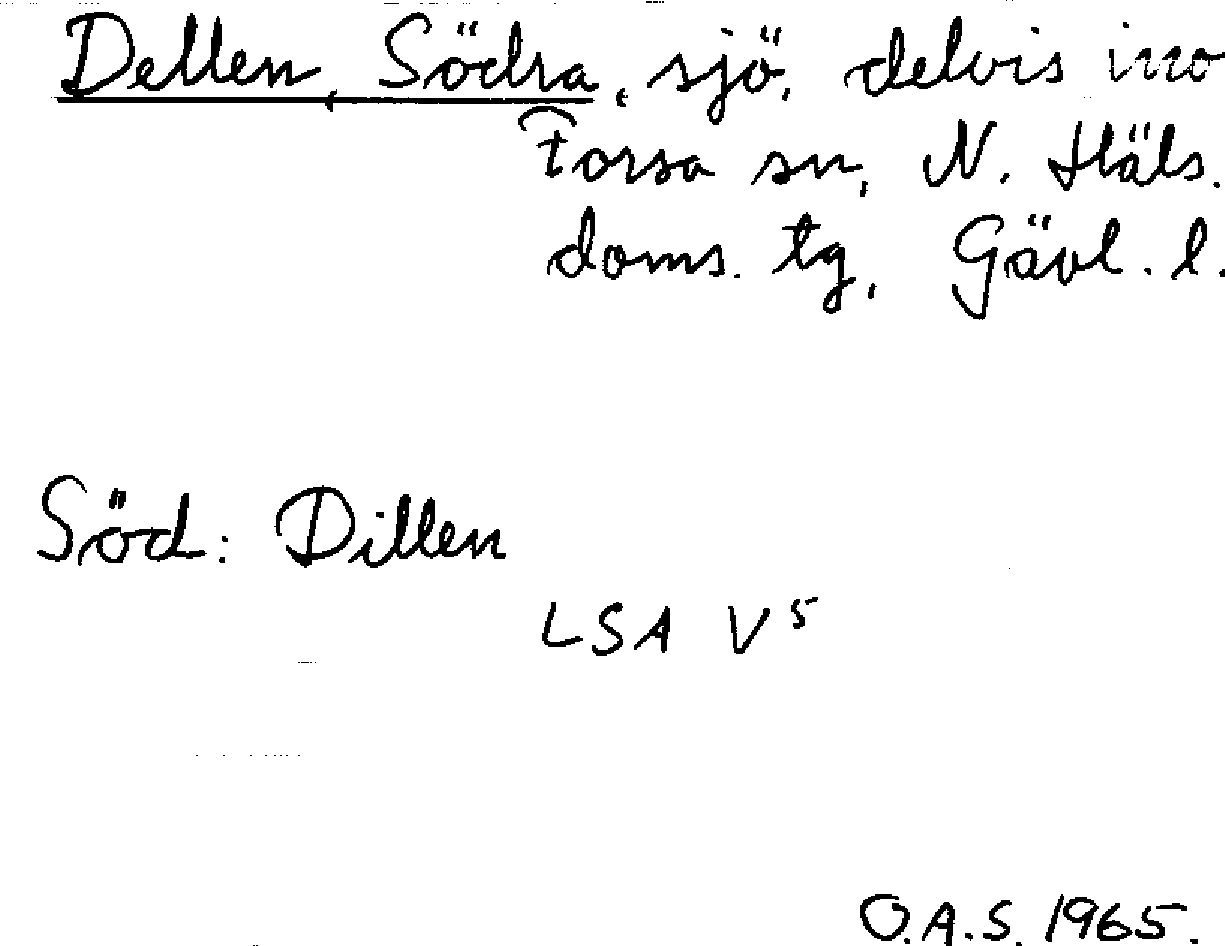 Dellen, Södra, sjö, delvis ino
Forsa sn, N. Häls.
doms. tg, Gävl. l.
Söd: Dillen
LSA V⁵
O.A.S. 1965.